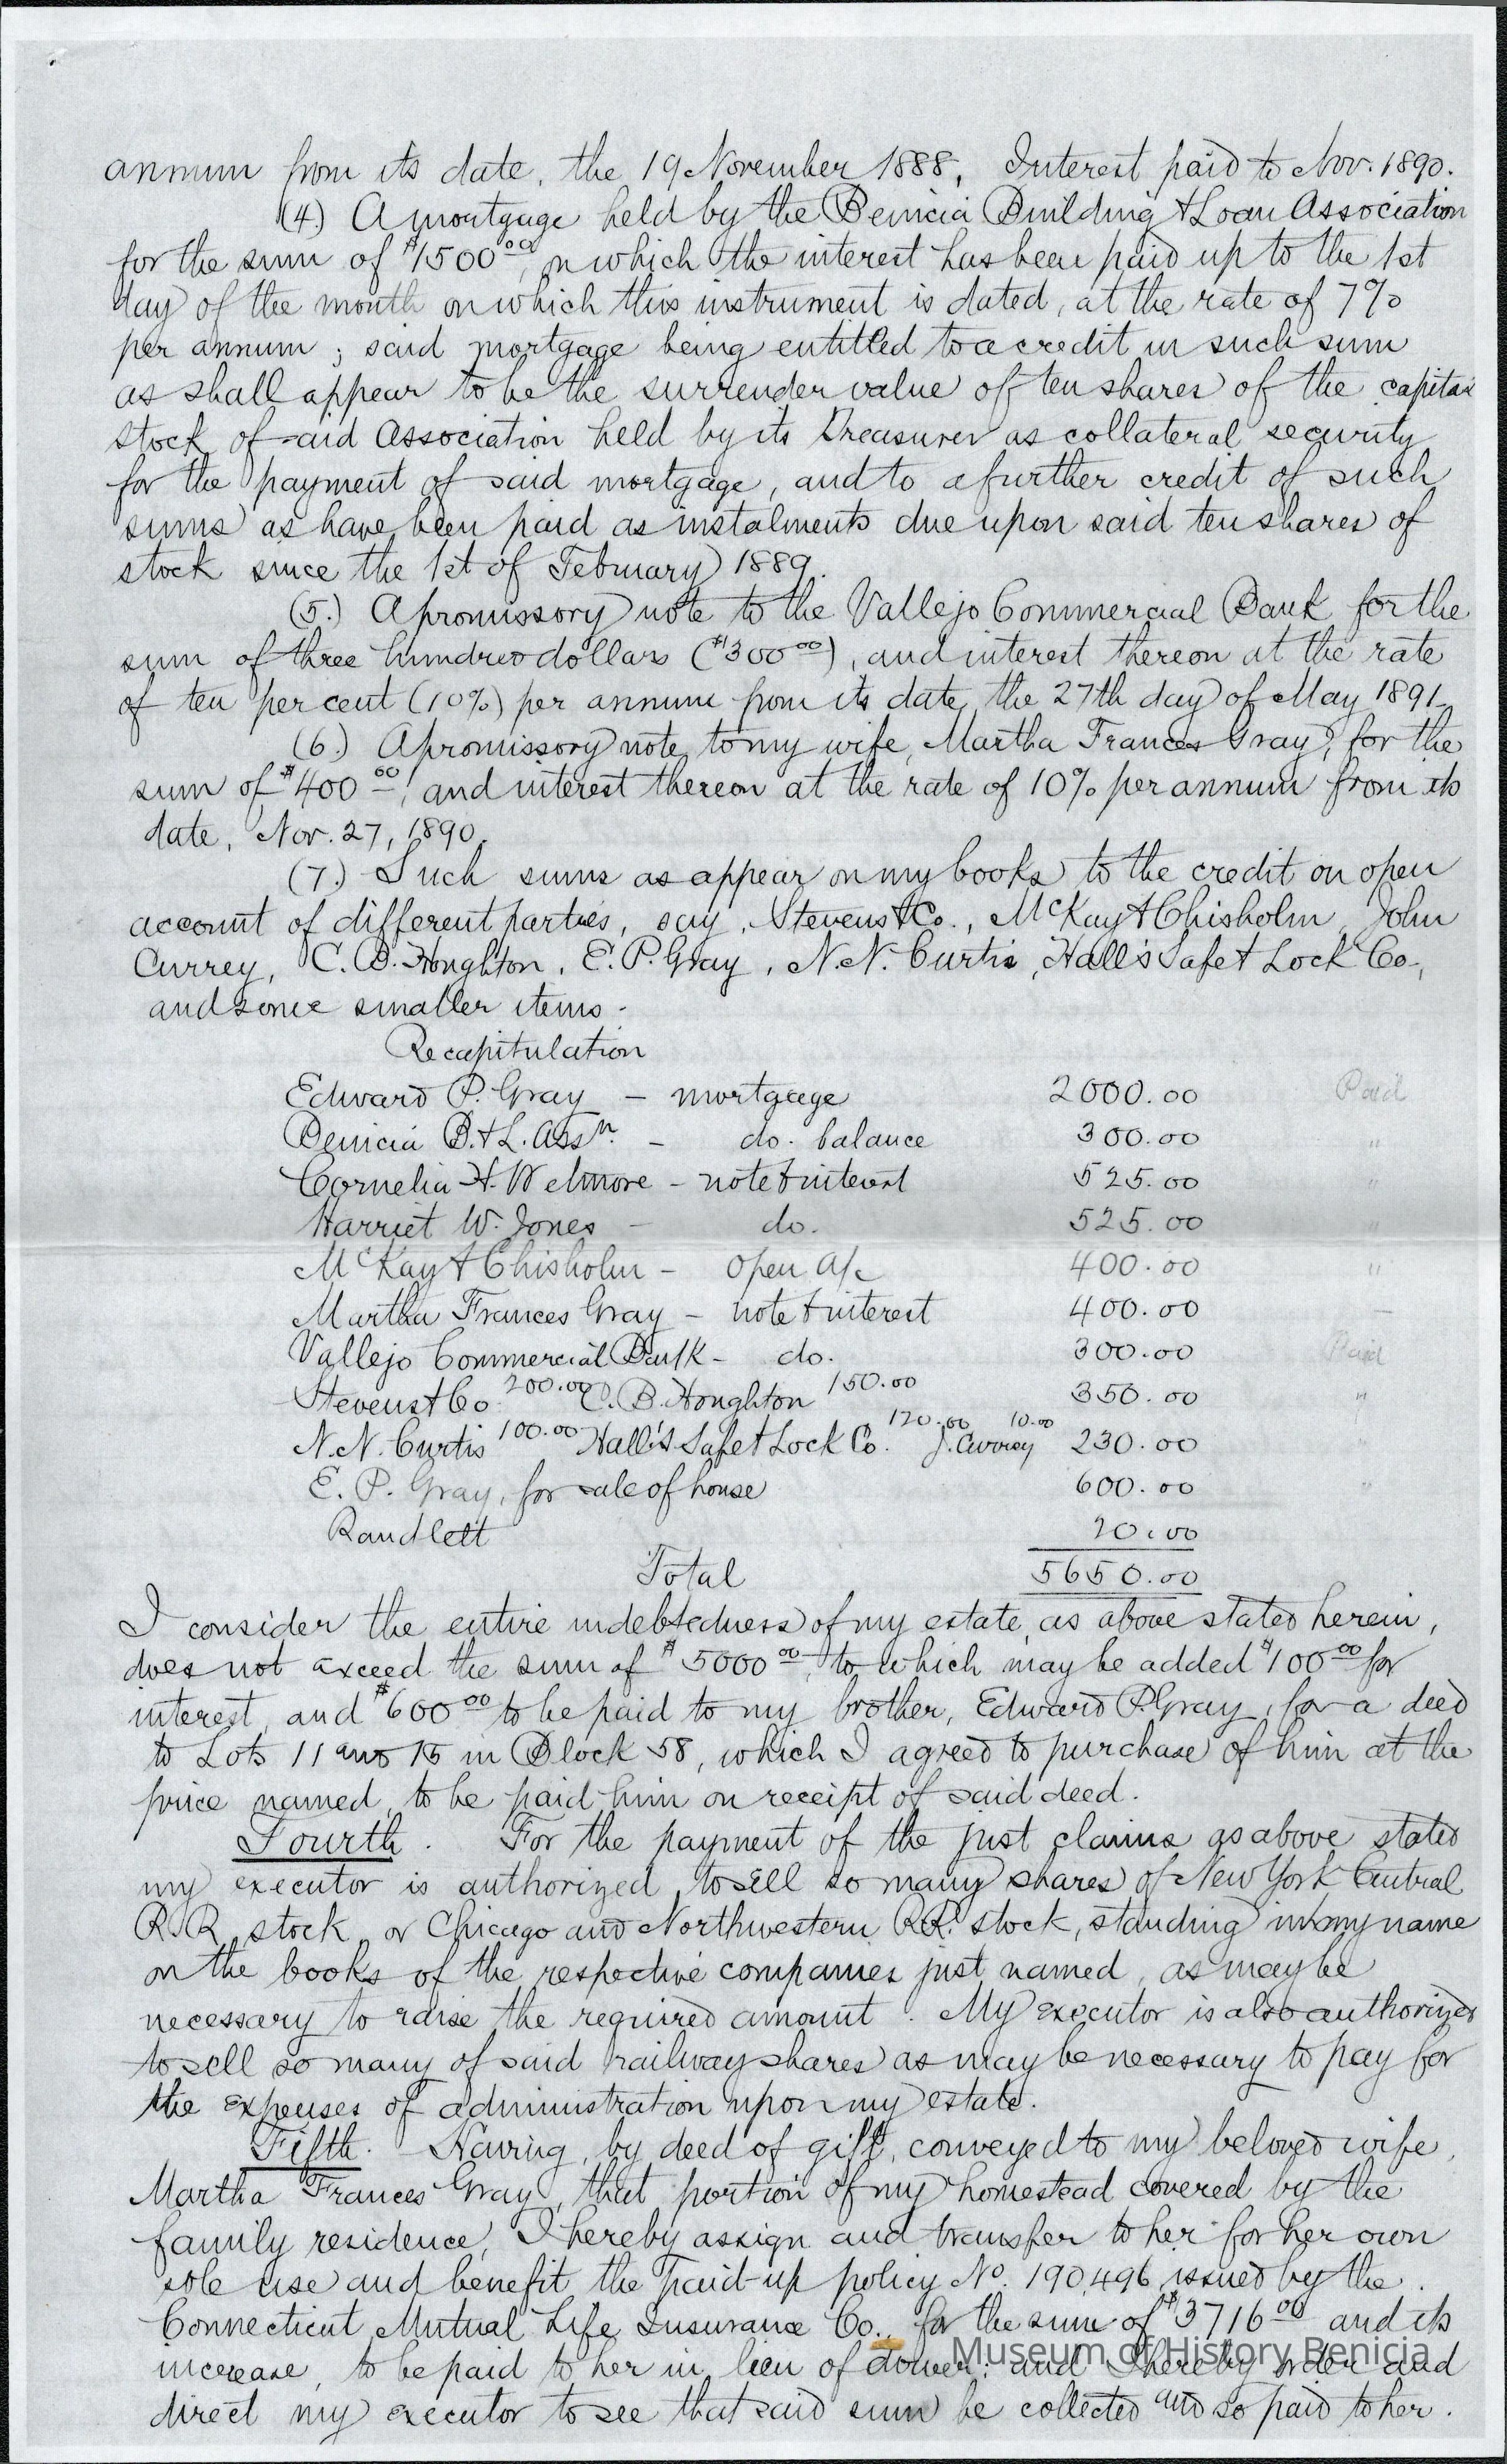 annum from its date, the 19 November 1888, Interest paid to Nov. 1890.
(4.) A mortgage held by the Benicia Building & Loan Association
for the sum of $1500.00, on which the interest has been paid up to the 1st
day of the month on which this instrument is dated, at the rate of 7%
per annum; said mortgage being entitled to a credit in such sum
as shall appear to be the surrender value of ten shares of the capital
stock of said Association held by its Treasurer as collateral security
for the payment of said mortgage, and to a further credit of such
sums as have been paid as instalments due upon said ten shares of
stock since the 1st of February 1889.
(5.) A promissory note to the Vallejo Commercial Bank for the
sum of three hundred dollars ($300.00), and interest thereon at the rate
of ten per cent (10%) per annum from its date, the 27th day of May 1891.
(6.) A promissory note to my wife, Martha Frances Gray, for the
sum of $400.00, and interest thereon at the rate of 10% per annum from its
date, Nov. 27, 1890.
(7.) Such sums as appear on my books to the credit on open
account of different parties, say, Stevens & Co., McKay & Chisholm, John
Currey, C. B. Houghton, E. P. Gray, N. N. Curtis, Hall's Safe & Lock Co.,
and some smaller items.
Recapitulation
Edward P. Gray - mortgage 2000.00 Paid
Benicia B. & L. Assn. - do. balance 300.00 "
Cornelia H. Wetmore - note & interest 525.00 "
Harriet W. Jones - do. 525.00 "
McKay & Chisholm - open a/c 400.00 "
Martha Frances Gray - note & interest 400.00 -
Vallejo Commercial Bank - do. 300.00 Paid
Stevens & Co. 200.00 C. B. Houghton 150.00 350.00 "
N. N. Curtis 100.00 Hall's Safe & Lock Co. 120.00 J. Currey 10.00 230.00 "
E. P. Gray, for sale of house 600.00 "
Randlett 20.00
Total 5650.00
I consider the entire indebtedness of my estate, as above stated herein,
does not exceed the sum of $5000.00, to which may be added $100.00 for
interest, and $600.00 to be paid to my brother, Edward P. Gray, for a deed
to Lots 11 and 15 in Block 58, which I agreed to purchase of him at the
price named, to be paid him on receipt of said deed.
Fourth. For the payment of the just claims as above stated
my executor is authorized to sell so many shares of New York Central
R.R. stock, or Chicago and Northwestern R.R. stock, standing in my name
on the books of the respective companies just named, as may be
necessary to raise the required amount. My executor is also authorized
to sell so many of said railway shares as may be necessary to pay for
the expenses of administration upon my estate.
Fifth. Having, by deed of gift, conveyed to my beloved wife,
Martha Frances Gray, that portion of my homestead covered by the
family residence, I hereby assign and transfer to her for her own
sole use and benefit the Paid-up policy No. 190,496 issued by the
Connecticut Mutual Life Insurance Co., for the sum of $3716.00 and its
increase, to be paid to her in lieu of dower; and I hereby order and
direct my executor to see that said sum be collected and so paid to her.
Museum of History Benicia